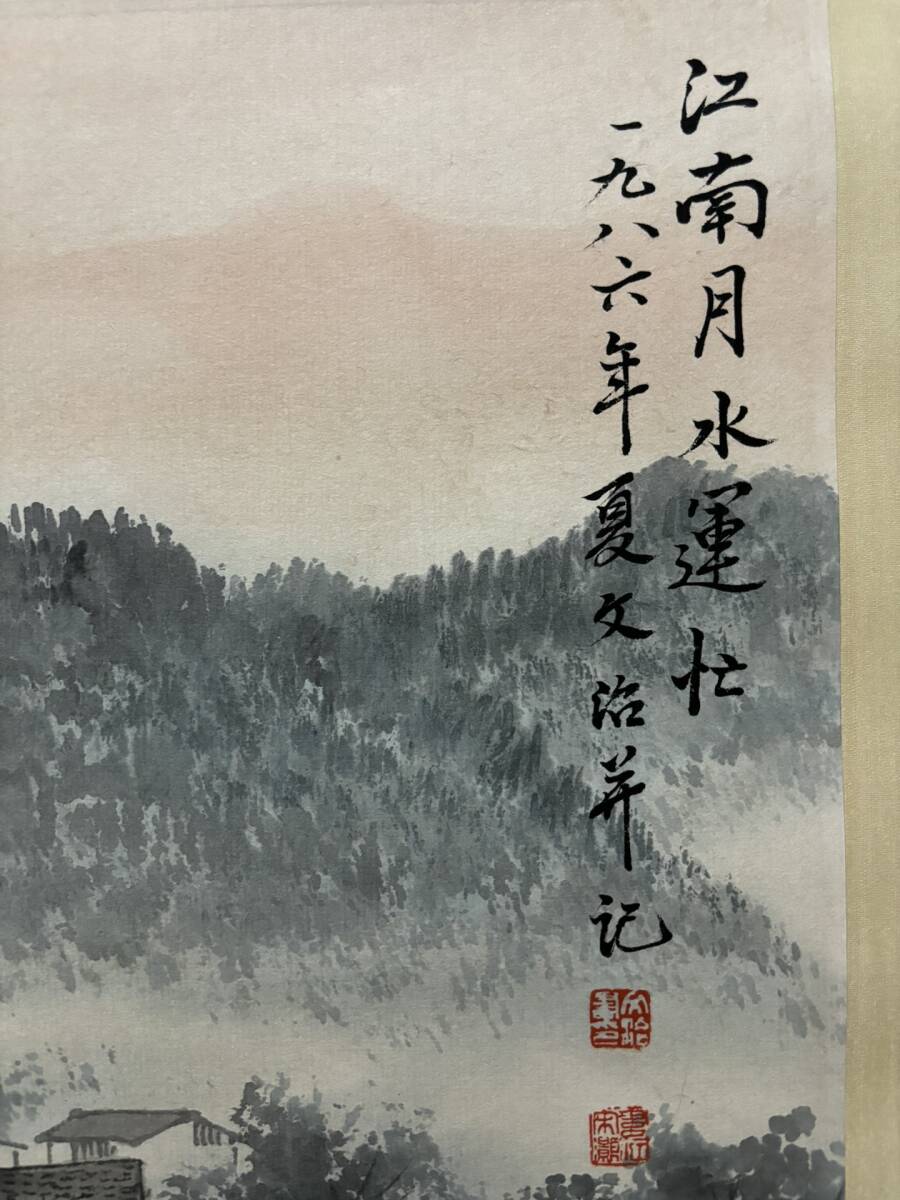 江南月水運忙
一九八六年夏文治并记